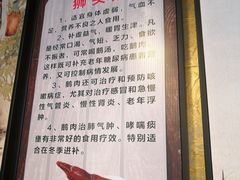 狮
1、适宜身体虚弱，气血不
足，营养不良之人食用。
2、补虚益气，暖胃生津。凡
是经常口渴、气短、乏力、食欲
不振者，可常喝鹅汤，吃鹅肉，
这样既可补充老年糖尿病患者营
养，又可控制病情发展。
3、鹅肉还可治疗和预防咳
嗽病症，尤其对治疗感冒和急慢
性气管炎、慢性肾炎、老年浮
肿。
4、鹅肉治肺气肿、哮喘痰
壅有非常好的食用疗效。特别适
合在冬季进补。